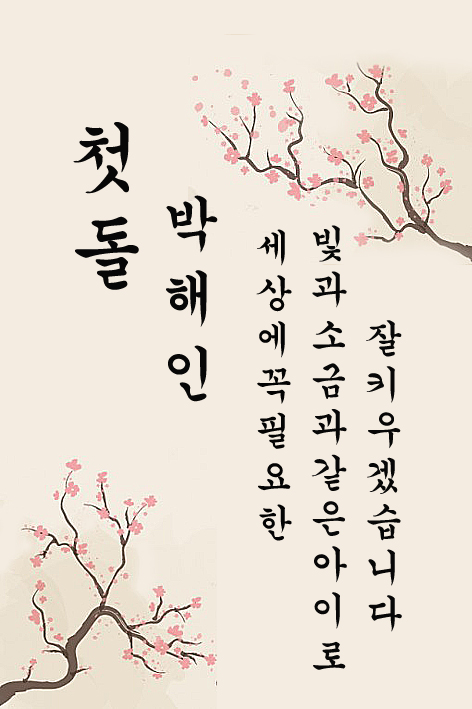 첫돌
박해인
세상에꼭필요한
빛과소금과같은아이로
잘키우겠습니다